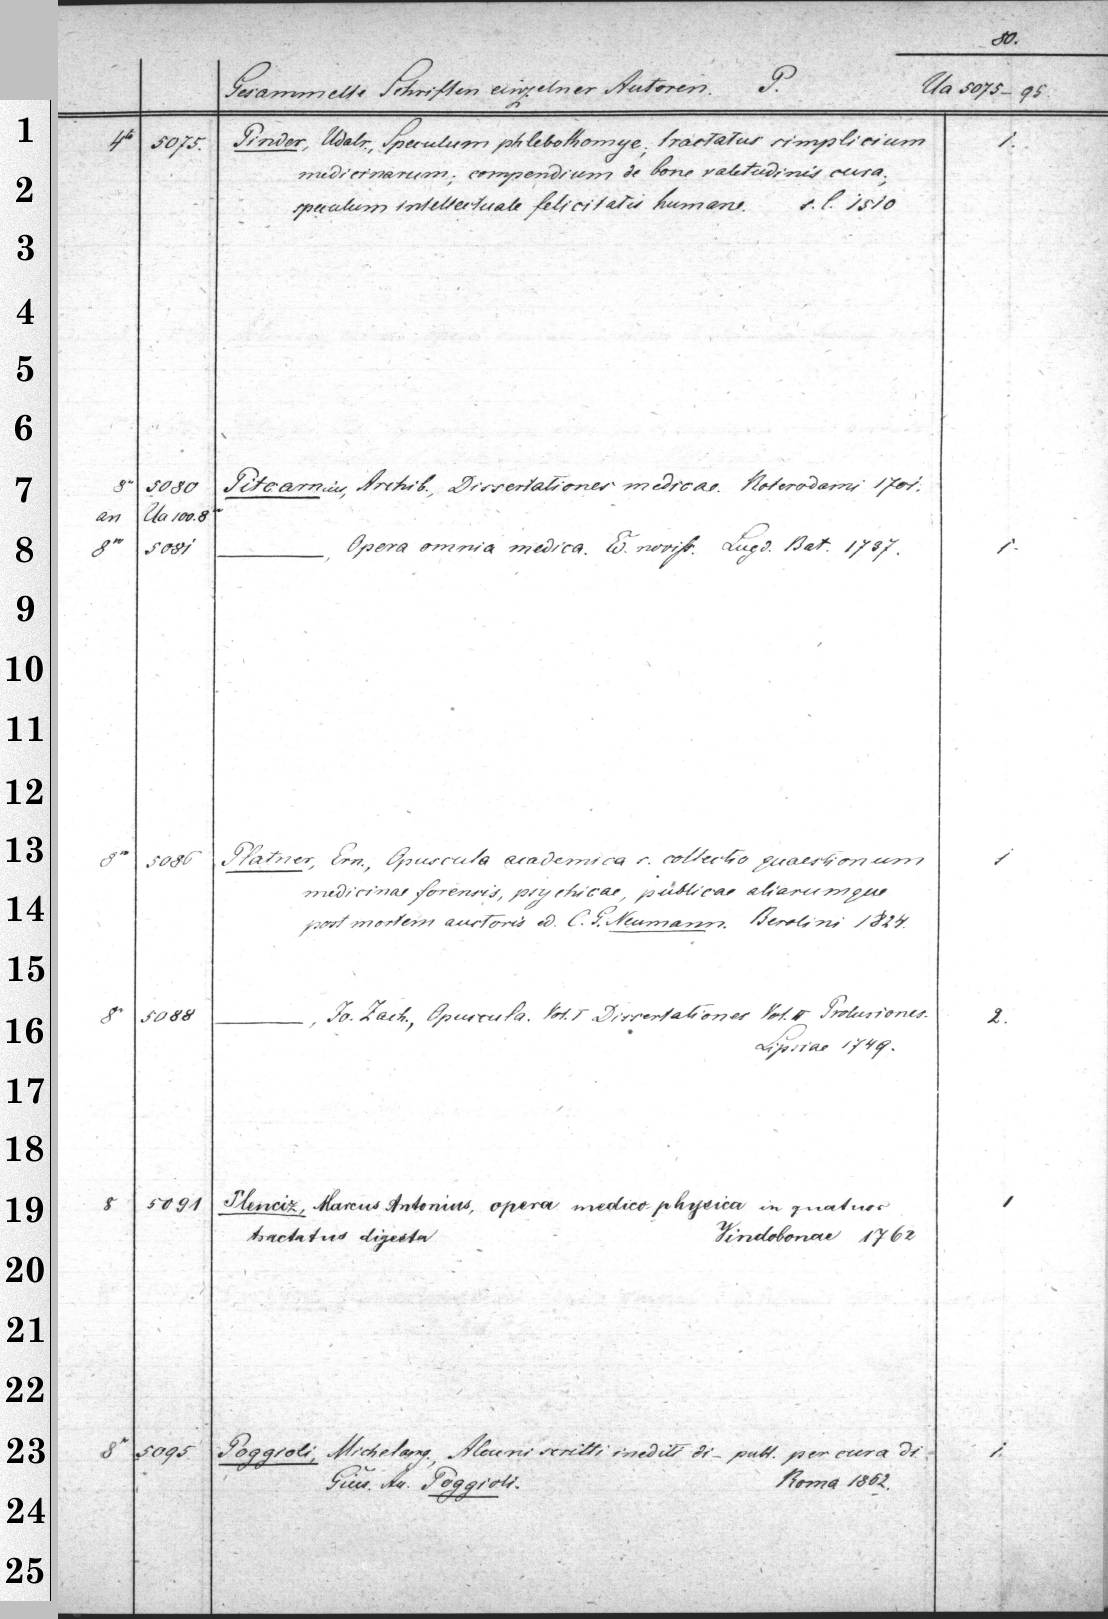 80.
Gesammelte Schriften einzelner Autoren. P. Ua 5075-95.
1
4to 5075. Pinder, Udalr., Speculum phlebothomye; tractatus simplicium 1.
medicinarum; compendium de bone valetudinis cura;
2
speculum intellectuale felicitatis humane. s. l. 1510
3
4
5
6
7
8o 5080 Pitcarnius, Archib., Dissertationes medicae. Roterodami 1701.
an Ua 100.8o
8
8o 5081 ———, Opera omnia medica. Ed. noviss. Lugd. Bat. 1737. 1.
9
10
11
12
13
8o 5086 Platner, Ern., Opuscula academica s. collectio quaestionum 1
medicinae forensis, psychicae, publicae aliarumque
14
post mortem auctoris ed. C. G. Neumann. Berolini 1824.
15
16
8o 5088 ———, Jo. Zach., Opuscula. Vol. I Dissertationes Vol. II Prolusiones. 2.
Lipsiae 1749.
17
18
19
8 5091 Plenciz, Marcus Antonius, opera medico physica in quatuor 1
tractatus digesta Vindobonae 1762
20
21
22
23
8o 5095 Poggioli, Michelang., Alcuni scritti inediti di - publ. per cura di 1.
Gius. Poggioli. Roma 1862.
24
25